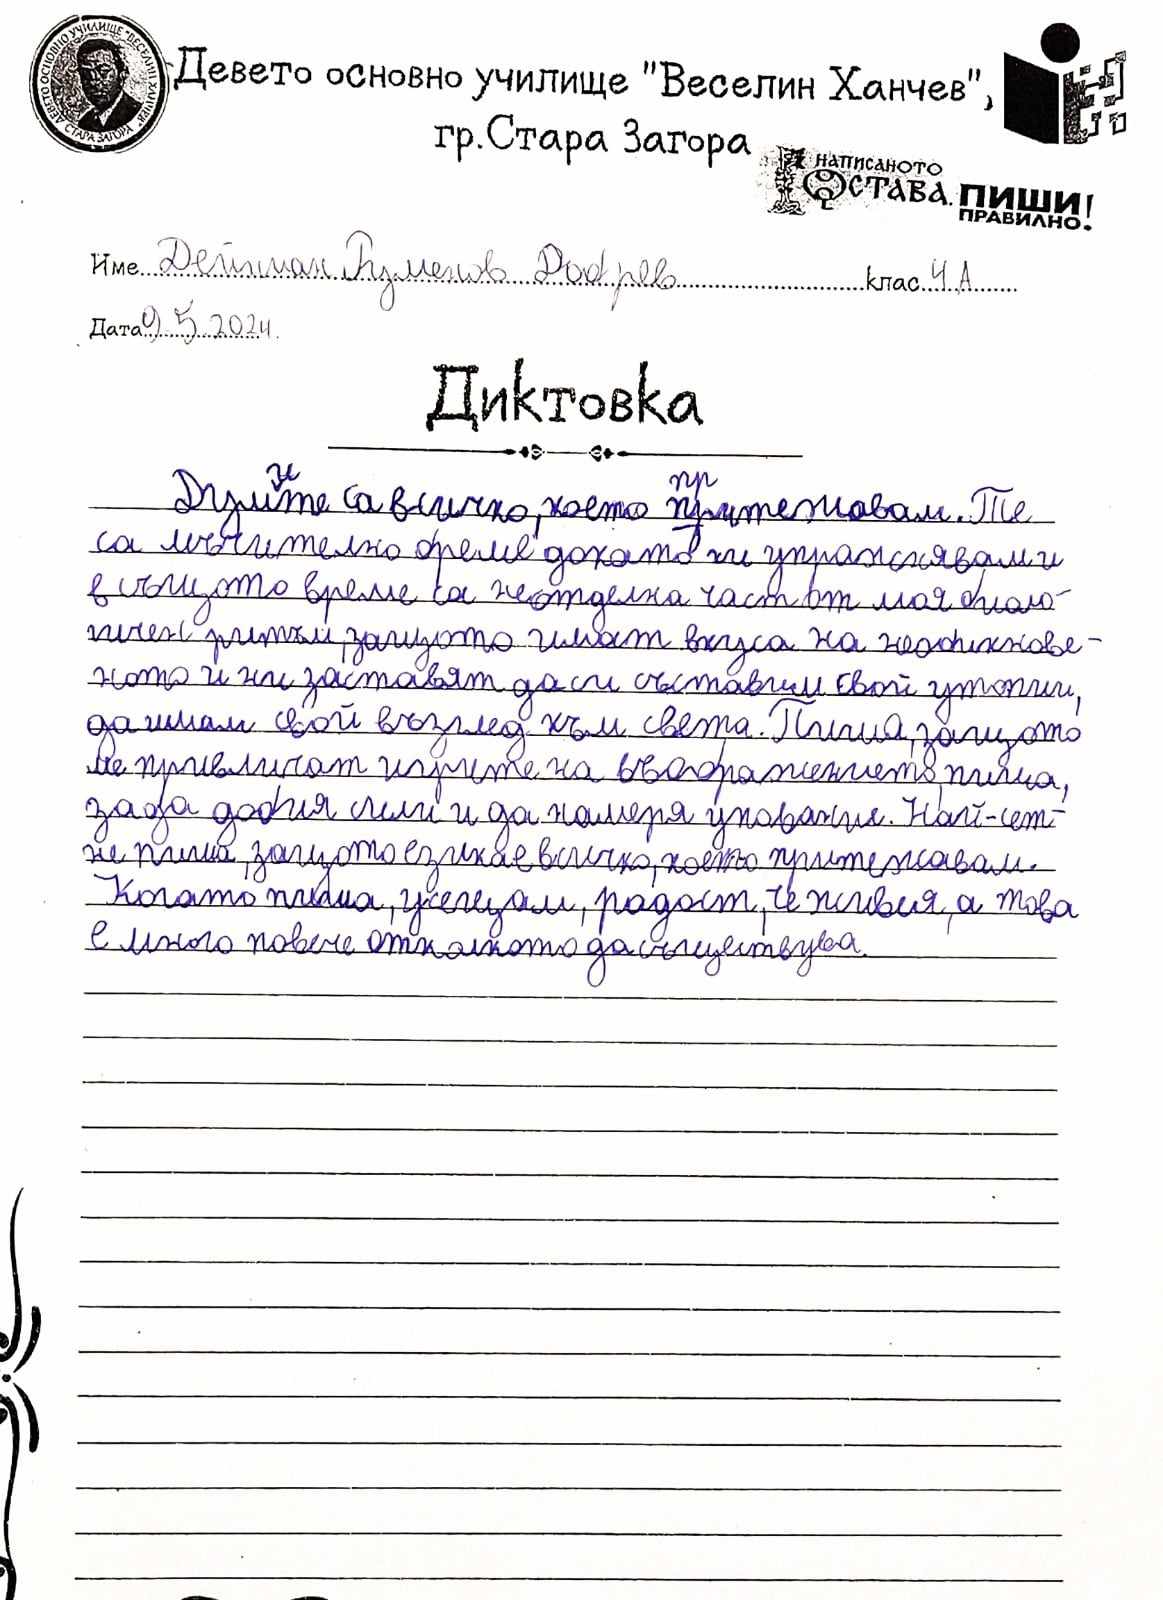 ДЕВЕТО ОСНОВНО УЧИЛИЩЕ "ВЕСЕЛИН ХАНЧЕВ"
СТАРА ЗАГОРА
Девето основно училище "Веселин Ханчев",
гр.Стара Загора
НАПИСАНОТО
ОСТАВА. ПИШИ
ПРАВИЛНО!
Име Руменов Добрев клас 4 А
Дата 9.5.2024
Диктовка
и пр
Думите са всичко, което притежавам. Те
са мъчително бреме докато ги упражнявам и
в същото време са неотделна част от моя биоло-
гичен ритъм, защото имат вкуса на необикнове-
ното и ни заставят да си съставим свой утопии,
да имам свой възглед към света. Пиша, защото
ме привличат игрите на въображението, пиша,
за да добия сили и да намеря упование. Най-сет-
не пиша, защото езика е всичко, което притежавам.
Когато пиша, усещам, радост, че живея, а това
е много повече отколкото да съществува.